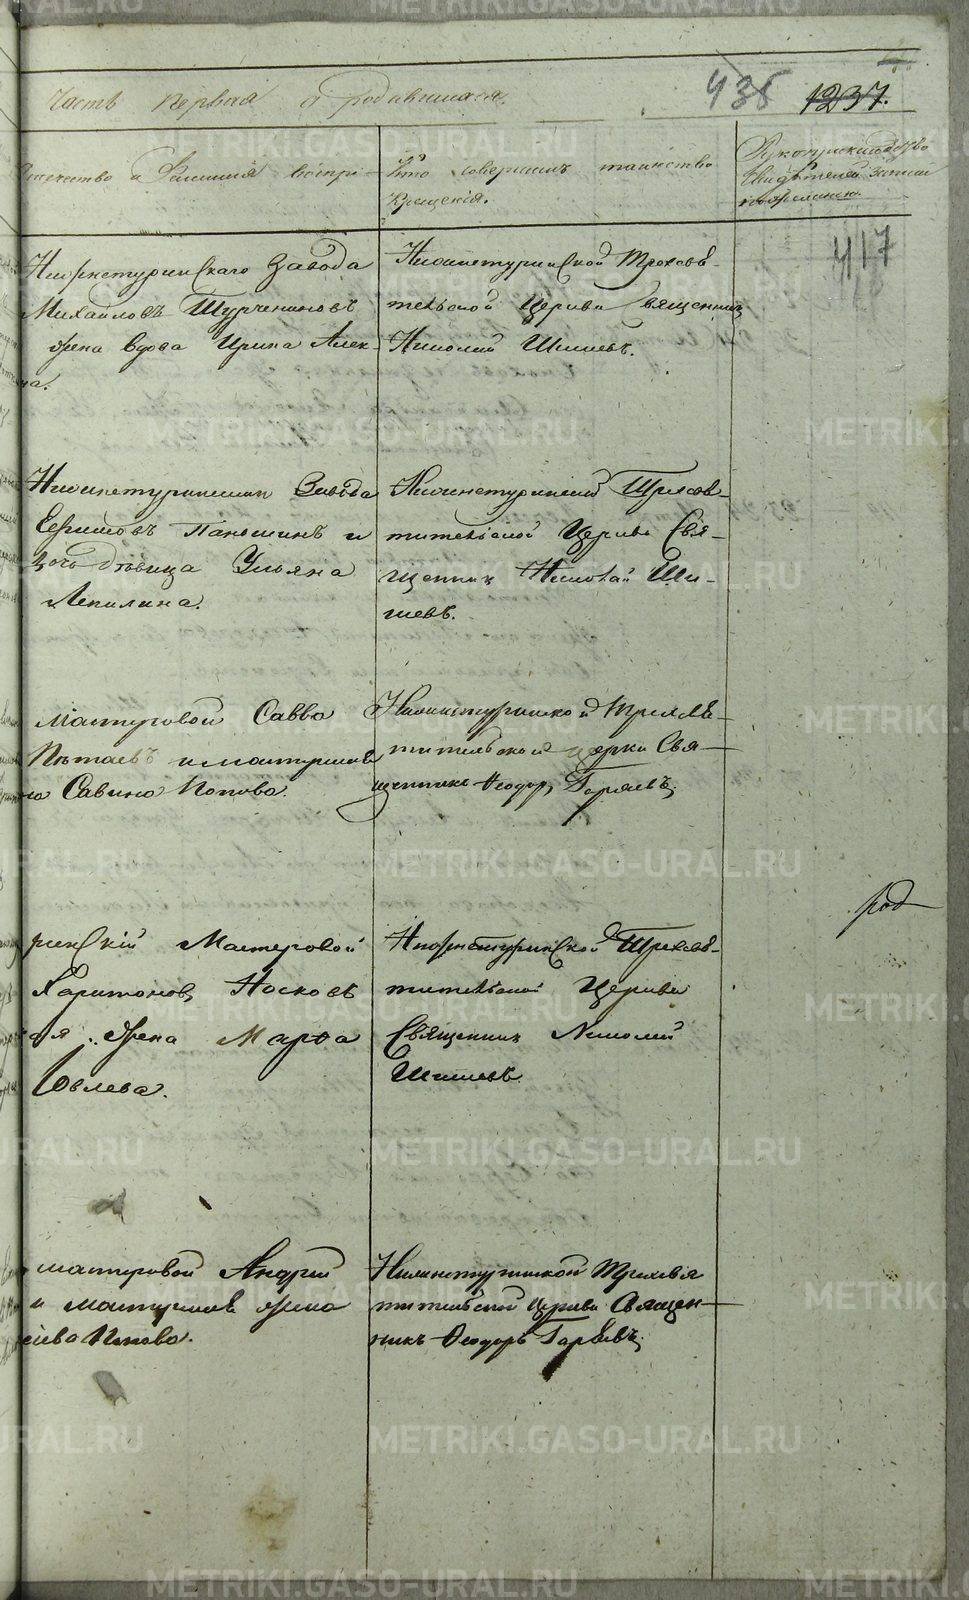 Часть первая о родившихся.
435 1237.
Отечество и Фамилия воспри-
Кто совершилъ таинство
Крещенія.
Рукоприкладство
Свидѣтелей записи
по желанію
417
Нижнетуринскаго Завода
Михайловъ Турчениновъ
жена вдова Ирина Алек-
на.
Нижнетуринской Трехсвя-
тительской Церкви Священникъ
Николай Шишевъ.
Нижнетуринскаго Завода
Ефимовъ Паньшинъ и
дочь дѣвица Ульяна
Лепилина.
Нижнетуринской Трехсвя-
тительской Церкви Свя-
щенникъ Николай Ши-
шевъ.
мастеровой Савва
Пѣтаевъ и мастеровов
Савина Попова.
Нижнетуринской Трехсвя-
тительской церкви Свя-
щенникъ Феодоръ Горяевъ.
род
ринскій Мастеровой
Харитоновъ Носковъ
ая жена Марѳа
Іовлева.
Нижнетуринской Трехсвя-
тительской Церкви
Священникъ Николай
Шишевъ.
мастеровой Андрей
и мастеровов жена
сіева Попова.
Нижнетуринской Трехсвя
тительской Церкви Священ-
никъ Феодоръ Горяевъ.
METRIKI.GASO-URAL.RU